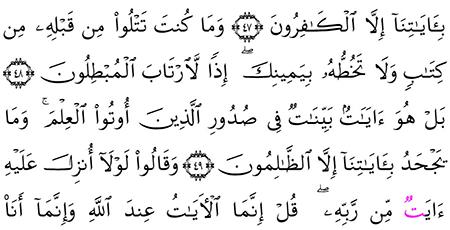 بِـَٔايَـٰتِنَآ إِلَّا ٱلْكَـٰفِرُونَ ٤٧ وَمَا كُنتَ تَتْلُوا۟ مِن قَبْلِهِۦ مِن
كِتَـٰبٍ وَلَا تَخُطُّهُۥ بِيَمِينِكَ ۖ إِذًا لَّٱرْتَابَ ٱلْمُبْطِلُونَ ٤٨
بَلْ هُوَ ءَايَـٰتٌۢ بَيِّنَـٰتٌ فِى صُدُورِ ٱلَّذِينَ أُوتُوا۟ ٱلْعِلْمَ ۚ وَمَا
يَجْحَدُ بِـَٔايَـٰتِنَآ إِلَّا ٱلظَّـٰلِمُونَ ٤٩ وَقَالُوا۟ لَوْلَآ أُنزِلَ عَلَيْهِ
ءَايَـٰتٌ مِّن رَّبِّهِۦ ۖ قُلْ إِنَّمَا ٱلْـَٔايَـٰتُ عِندَ ٱللَّهِ وَإِنَّمَآ أَنَا۠